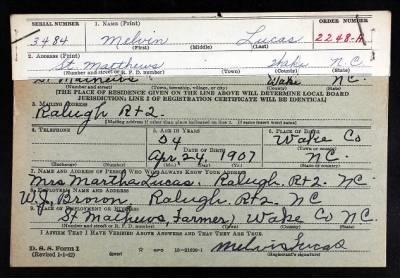 SERIAL NUMBER 1. NAME (Print) ORDER NUMBER
3484 Melvin Lucas 2248-A
(First) (Middle) (Last)
2. ADDRESS (Print)
St. Matthews Wake N.C.
(Number and street or R. F. D. number) (Town) (County) (State)
St. Mathews Wake N.C.
(Number and street) (Town, township, village, or city) (County) (State)
[THE PLACE OF RESIDENCE GIVEN ON THE LINE ABOVE WILL DETERMINE LOCAL BOARD
JURISDICTION; LINE 2 OF REGISTRATION CERTIFICATE WILL BE IDENTICAL]
3. MAILING ADDRESS
Raleigh Rt 2
[Mailing address if other than place indicated on line 2. If same insert word same]
4. TELEPHONE 5. AGE IN YEARS 6. PLACE OF BIRTH
34 Wake Co
DATE OF BIRTH
Apr. 24, 1907 NC.
(Exchange) (Number) (Mo.) (Day) (Yr.) (State or country)
7. NAME AND ADDRESS OF PERSON WHO WILL ALWAYS KNOW YOUR ADDRESS
Mrs Martha Lucas, Raleigh. Rt 2. NC
8. EMPLOYER'S NAME AND ADDRESS
W. J. Brown, Raleigh. Rt 2. NC
9. PLACE OF EMPLOYMENT OR BUSINESS
St Mathews, Farmer) Wake Co NC
(Number and street or R. F. D. number) (Town) (County) (State)
I AFFIRM THAT I HAVE VERIFIED ABOVE ANSWERS AND THAT THEY ARE TRUE.
D. S. S. Form 1
(Revised 1-1-42) GPO 16-21630-1 Melvin Lucas
(Registrant's signature)